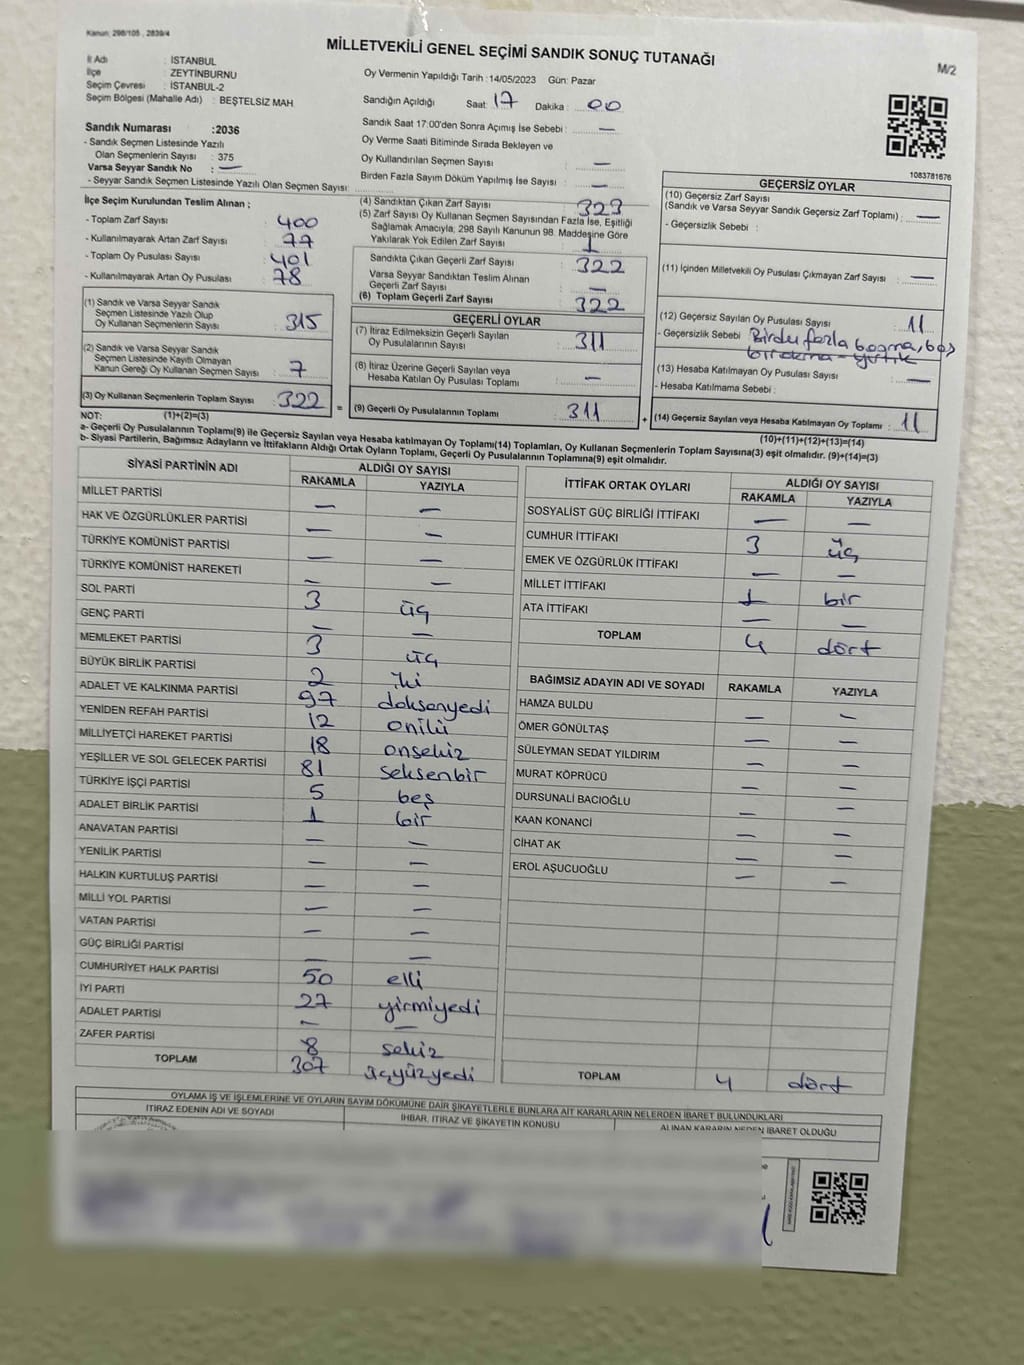 Kanun: 298/105 , 2839/4
MİLLETVEKİLİ GENEL SEÇİMİ SANDIK SONUÇ TUTANAĞI
M/2
İl Adı : İSTANBUL
İlçe : ZEYTİNBURNU
Seçim Çevresi : İSTANBUL-2
Seçim Bölgesi (Mahalle Adı) : BEŞTELSİZ MAH.
Sandık Numarası :2036
- Sandık Seçmen Listesinde Yazılı
Olan Seçmenlerin Sayısı : 375
Varsa Seyyar Sandık No : —
- Seyyar Sandık Seçmen Listesinde Yazılı Olan Seçmen Sayısı:
Oy Vermenin Yapıldığı Tarih :14/05/2023 Gün: Pazar
Sandığın Açıldığı Saat: 17 Dakika : 00
Sandık Saat 17:00'den Sonra Açımış İse Sebebi : —
Oy Verme Saati Bitiminde Sırada Bekleyen ve
Oy Kullandırılan Seçmen Sayısı : —
Birden Fazla Sayım Döküm Yapılmış İse Sayısı : —
1083781676
İlçe Seçim Kurulundan Teslim Alınan ;
- Toplam Zarf Sayısı : 400
- Kullanılmayarak Artan Zarf Sayısı : 77
- Toplam Oy Pusulası Sayısı : 401
- Kullanılmayarak Artan Oy Pusulası : 78
(1) Sandık ve Varsa Seyyar Sandık
Seçmen Listesinde Yazılı Olup
Oy Kullanan Seçmenlerin Sayısı : 315
(2) Sandık ve Varsa Seyyar Sandık
Seçmen Listesinde Kayıtlı Olmayan
Kanun Gereği Oy Kullanan Seçmen Sayısı : 7
(3) Oy Kullanan Seçmenlerin Toplam Sayısı : 322
(4) Sandıktan Çıkan Zarf Sayısı : 323
(5) Zarf Sayısı Oy Kullanan Seçmen Sayısından Fazla İse, Eşitliği
Sağlamak Amacıyla, 298 Sayılı Kanunun 98. Maddesine Göre
Yakılarak Yok Edilen Zarf Sayısı : 1
Sandıkta Çıkan Geçerli Zarf Sayısı : 322
Varsa Seyyar Sandıktan Teslim Alınan
Geçerli Zarf Sayısı : —
(6) Toplam Geçerli Zarf Sayısı : 322
GEÇERLİ OYLAR
(7) İtiraz Edilmeksizin Geçerli Sayılan
Oy Pusulalarının Sayısı : 311
(8) İtiraz Üzerine Geçerli Sayılan veya
Hesaba Katılan Oy Pusulası Toplamı : —
= (9) Geçerli Oy Pusulalarının Toplamı : 311
GEÇERSİZ OYLAR
(10) Geçersiz Zarf Sayısı
(Sandık ve Varsa Seyyar Sandık Geçersiz Zarf Toplamı) : —
- Geçersizlik Sebebi :
(11) İçinden Milletvekili Oy Pusulası Çıkmayan Zarf Sayısı : —
(12) Geçersiz Sayılan Oy Pusulası Sayısı : 11
- Geçersizlik Sebebi : fazla basma, boş
bırakma - yırtık
(13) Hesaba Katılmayan Oy Pusulası Sayısı : —
- Hesaba Katılmama Sebebi :
+ (14) Geçersiz Sayılan veya Hesaba Katılmayan Oy Toplamı : 11
NOT: (1)+(2)=(3) (10)+(11)+(12)+(13)=(14)
a- Geçerli Oy Pusulaları Toplamı(9) ile Geçersiz Sayılan veya Hesaba katılmayan Oy Toplamı(14) Toplamları, Oy Kullanan Seçmenlerin Toplam Sayısına(3) eşit olmalıdır. (9)+(14)=(3)
b- Siyasi Partilerin, Bağımsız Adayların ve İttifakların Aldığı Ortak Oyların Toplamı, Geçerli Oy Pusulalarının Toplamına(9) eşit olmalıdır.
SİYASİ PARTİNİN ADI ALDIĞI OY SAYISI
RAKAMLA YAZIYLA
MİLLET PARTİSİ — —
HAK VE ÖZGÜRLÜKLER PARTİSİ — —
TÜRKİYE KOMÜNİST PARTİSİ — —
TÜRKİYE KOMÜNİST HAREKETİ — —
SOL PARTİ 3 üç
GENÇ PARTİ — —
MEMLEKET PARTİSİ 3 üç
BÜYÜK BİRLİK PARTİSİ 2 iki
ADALET VE KALKINMA PARTİSİ 97 doksanyedi
YENİDEN REFAH PARTİSİ 12 oniki
MİLLİYETÇİ HAREKET PARTİSİ 18 onsekiz
YEŞİLLER VE SOL GELECEK PARTİSİ 81 seksenbir
TÜRKİYE İŞÇİ PARTİSİ 5 beş
ADALET BİRLİK PARTİSİ 1 bir
ANAVATAN PARTİSİ — —
YENİLİK PARTİSİ — —
HALKIN KURTULUŞ PARTİSİ — —
MİLLİ YOL PARTİSİ — —
VATAN PARTİSİ — —
GÜÇ BİRLİĞİ PARTİSİ — —
CUMHURİYET HALK PARTİSİ 50 elli
İYİ PARTİ 27 yirmiyedi
ADALET PARTİSİ — —
ZAFER PARTİSİ 8 sekiz
TOPLAM 307 üçyüzyedi
İTTİFAK ORTAK OYLARI ALDIĞI OY SAYISI
RAKAMLA YAZIYLA
SOSYALİST GÜÇ BİRLİĞİ İTTİFAKI — —
CUMHUR İTTİFAKI 3 üç
EMEK VE ÖZGÜRLÜK İTTİFAKI — —
MİLLET İTTİFAKI 1 bir
ATA İTTİFAKI — —
TOPLAM 4 dört
BAĞIMSIZ ADAYIN ADI VE SOYADI RAKAMLA YAZIYLA
HAMZA BULDU — —
ÖMER GÖNÜLTAŞ — —
SÜLEYMAN SEDAT YILDIRIM — —
MURAT KÖPRÜCÜ — —
DURSUNALİ BACIOĞLU — —
KAAN KONANCİ — —
CİHAT AK — —
EROL AŞUCUOĞLU — —
TOPLAM 4 dört
OYLAMA İŞ VE İŞLEMLERİNE VE OYLARIN SAYIM DÖKÜMÜNE DAİR ŞİKAYETLERLE BUNLARA AİT KARARLARIN NELERDEN İBARET BULUNDUKLARI
İTİRAZ EDENİN ADI VE SOYADI İHBAR, İTİRAZ VE ŞİKAYETİN KONUSU ALINAN KARARIN NEDEN İBARET OLDUĞU